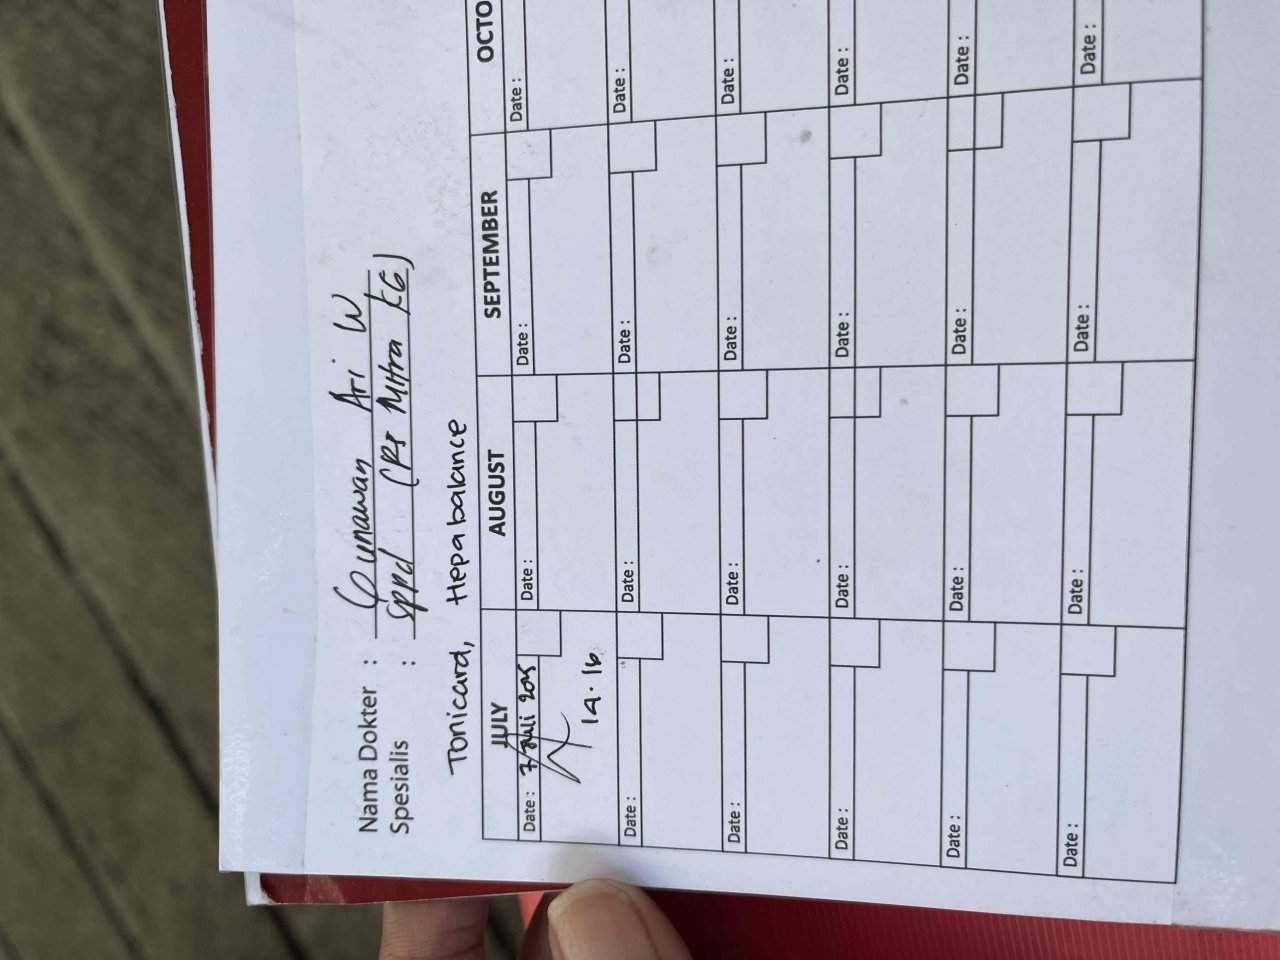 Nama Dokter : Gunawan Ari W
Spesialis : SppD (Rs Mitra KG)
Tonicard, Hepabalance
JULY AUGUST SEPTEMBER OCTO
Date : 7 Juli 2025 Date : Date : Date :
14.16
Date : Date : Date : Date :
Date : Date : Date : Date :
Date : Date : Date : Date :
Date : Date : Date : Date :
Date : Date : Date : Date :